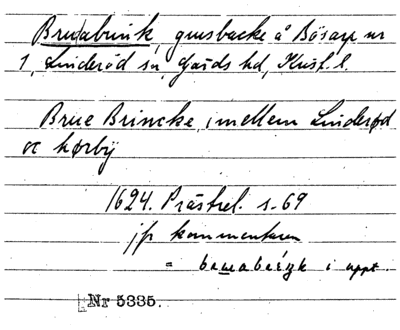 Brudabrink, grusbacke å Bösarp nr
1, Linderöd sn, Gärds hd, Krist. l.
Brue Brincke, imellem Linderød
oc hørby
1624. Prästrel. s. 69
jfr kommentaren
= i uppt.
Nr 5335.